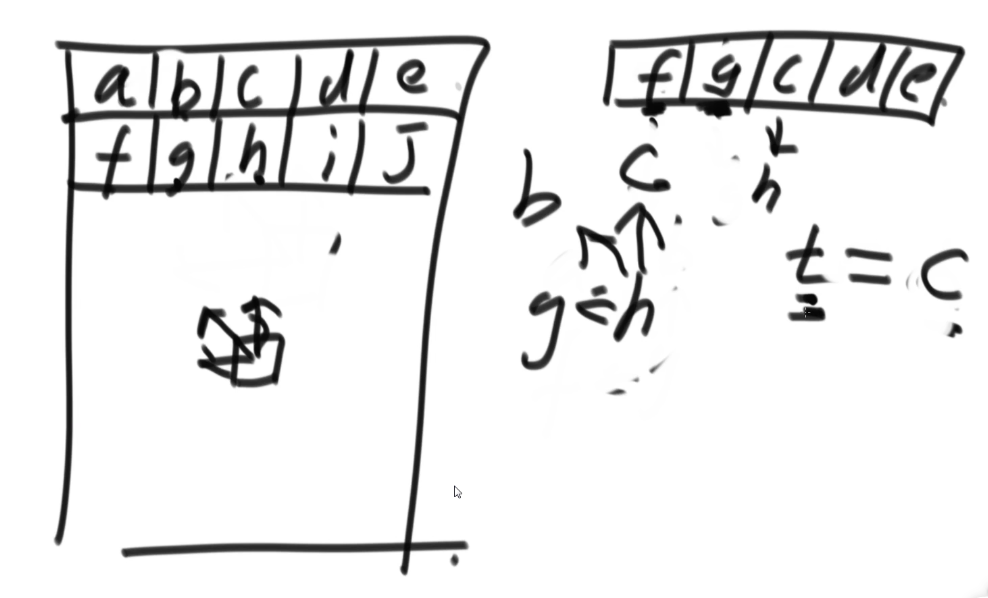 a b c d e
f g h i J
f g c d e
h
b c
g h
t = c